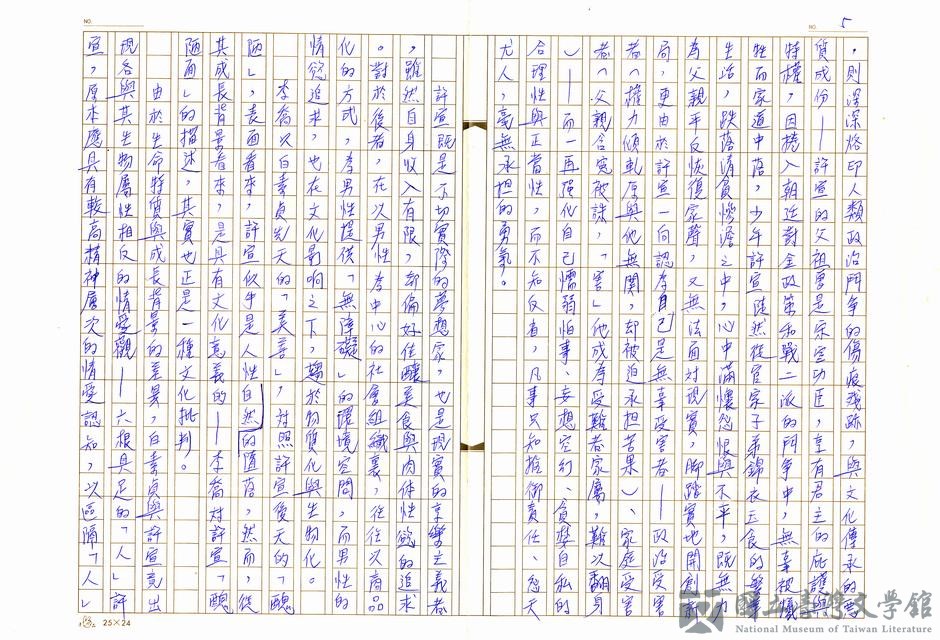 5
NO.
，則深深烙印人類政治鬥爭的傷痕殘跡，與文化傳承的雪
貨成份——許宣的父祖曾是宋室功臣，享有君主的庇護與
特權，因捲入朝廷對金政策和戰二派的鬥爭中，無辜被犧
牲而家道中落，少年許宣陡然從官家子弟錦衣玉食的繁華
生活，跌落清貧慘澹之中，心中滿懷怨恨與不平，既無力
為父親平反恢復家聲，又無法面對現實，腳踏實地開創新
局，更由於許宣一向認為自己是無辜受害者——政治受害
者（權力傾軋原與他無關，却被迫承担苦果）、家庭受害
者（父親含冤被誅，「害」他成為受難者家屬，難以翻身
）——而一再强化自己懦弱怕事、妄想空幻、貪婪自私的
合理性與正當性，而不知反省，凡事只知推御責任、怨天
尤人，毫無承担的勇氣。
許宣既是不切實際的夢想家，也是現實的享樂主義者
，雖然自身收入有限，却偏好佳釀美食與肉体性慾的追求
。對於後者，在以男性為中心的社會組織裏，往往以商品
化的方式，為男性提供「無障礙」的環境空間，而男性的
情慾追求，也在文化影响之下，趨於物質化與生物化。
李喬以白素貞先天的「美善」，對照許宣後天的「醜
陋」，表面看來，許宣似乎是人性自然的墮落，然而，從
其成長背景看來，是具有文化意義的——李喬對許宣「醜
陋面」的描述，其實也正是一種文化批判。
由於生命特質與成長背景的差異，白素貞與許宣竟出
現各與其生物屬性相反的情愛觀——六根具足的「人」許
宣，原本應具有較高精神層次的情愛認知，以區隔「人」
NO.
25×24
國立臺灣文學館
National Museum of Taiwan Literature